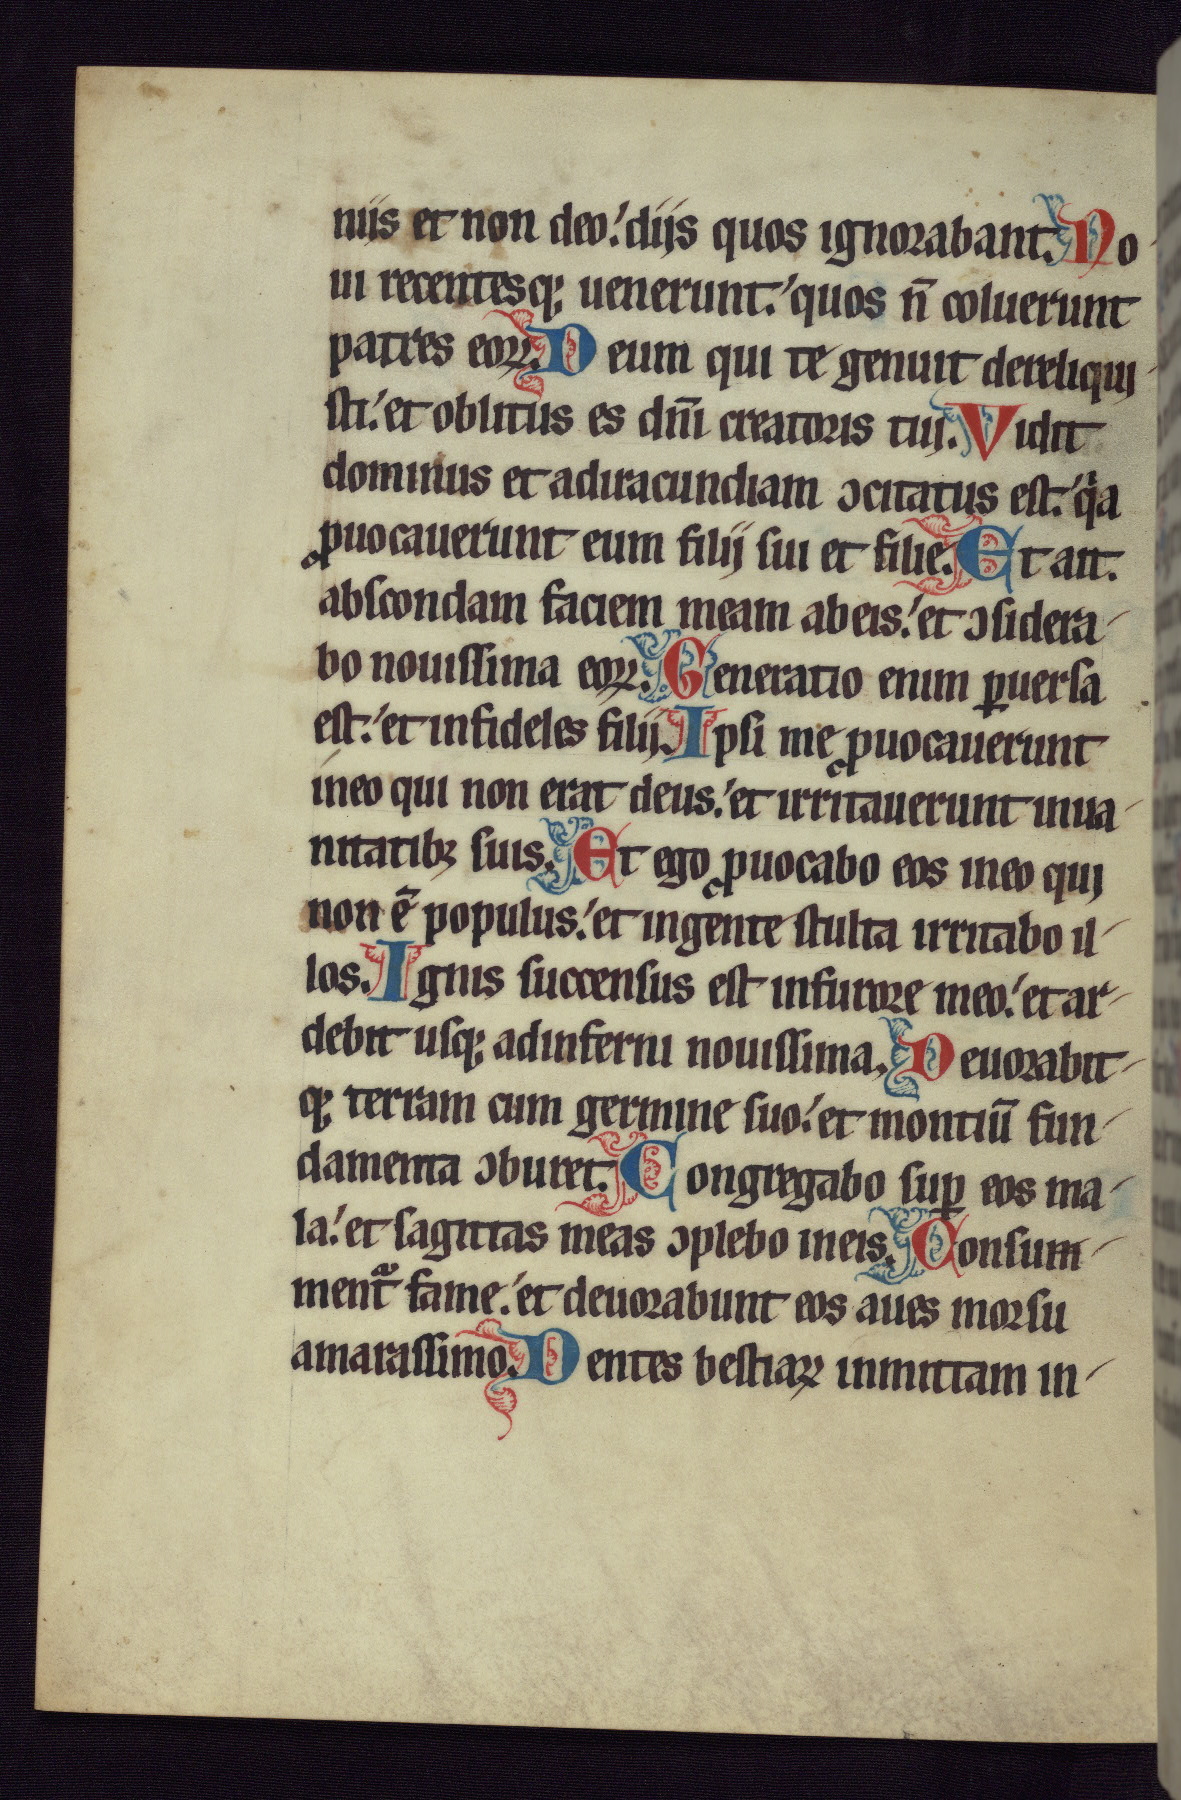 niis et non deo.' diis quos ignorabant. No
ui recentesq; uenerunt.' quos n̄ coluerunt
patres eoꝝ. Deum qui te genuit dereliqui
sti.' et oblitus es dn̄i creatoris tui. Vidit
dominus et adiracundiam ɔcitatus est.' qͥa
ꝓuocauerunt eum filij sui et filie. Et ait.
abscondam faciem meam abeis.' et ɔsidera
bo nouissima eoꝝ. Generatio enim ꝑuersa
est.' et infideles filij. Ipsi me ꝓuocauerunt
ineo qui non erat deus.' et irritauerunt inua
nitatibꝫ suis. Et ego ꝓuocabo eos ineo qui
non ē populus.' et ingente stulta irritabo il
los. Ignis succensus est infurore meo.' et ar
debit usq; adinferni nouissima. Deuorabit
q; terram cum germine suo.' et montiū fun
damenta ɔburet. Congregabo suꝑ eos ma
la.' et sagittas meas ɔplebo ineis. Consum
mentᷓ fame.' et deuorabunt eos aues morsu
amarassimo. Dentes bestiaꝝ inmittam in